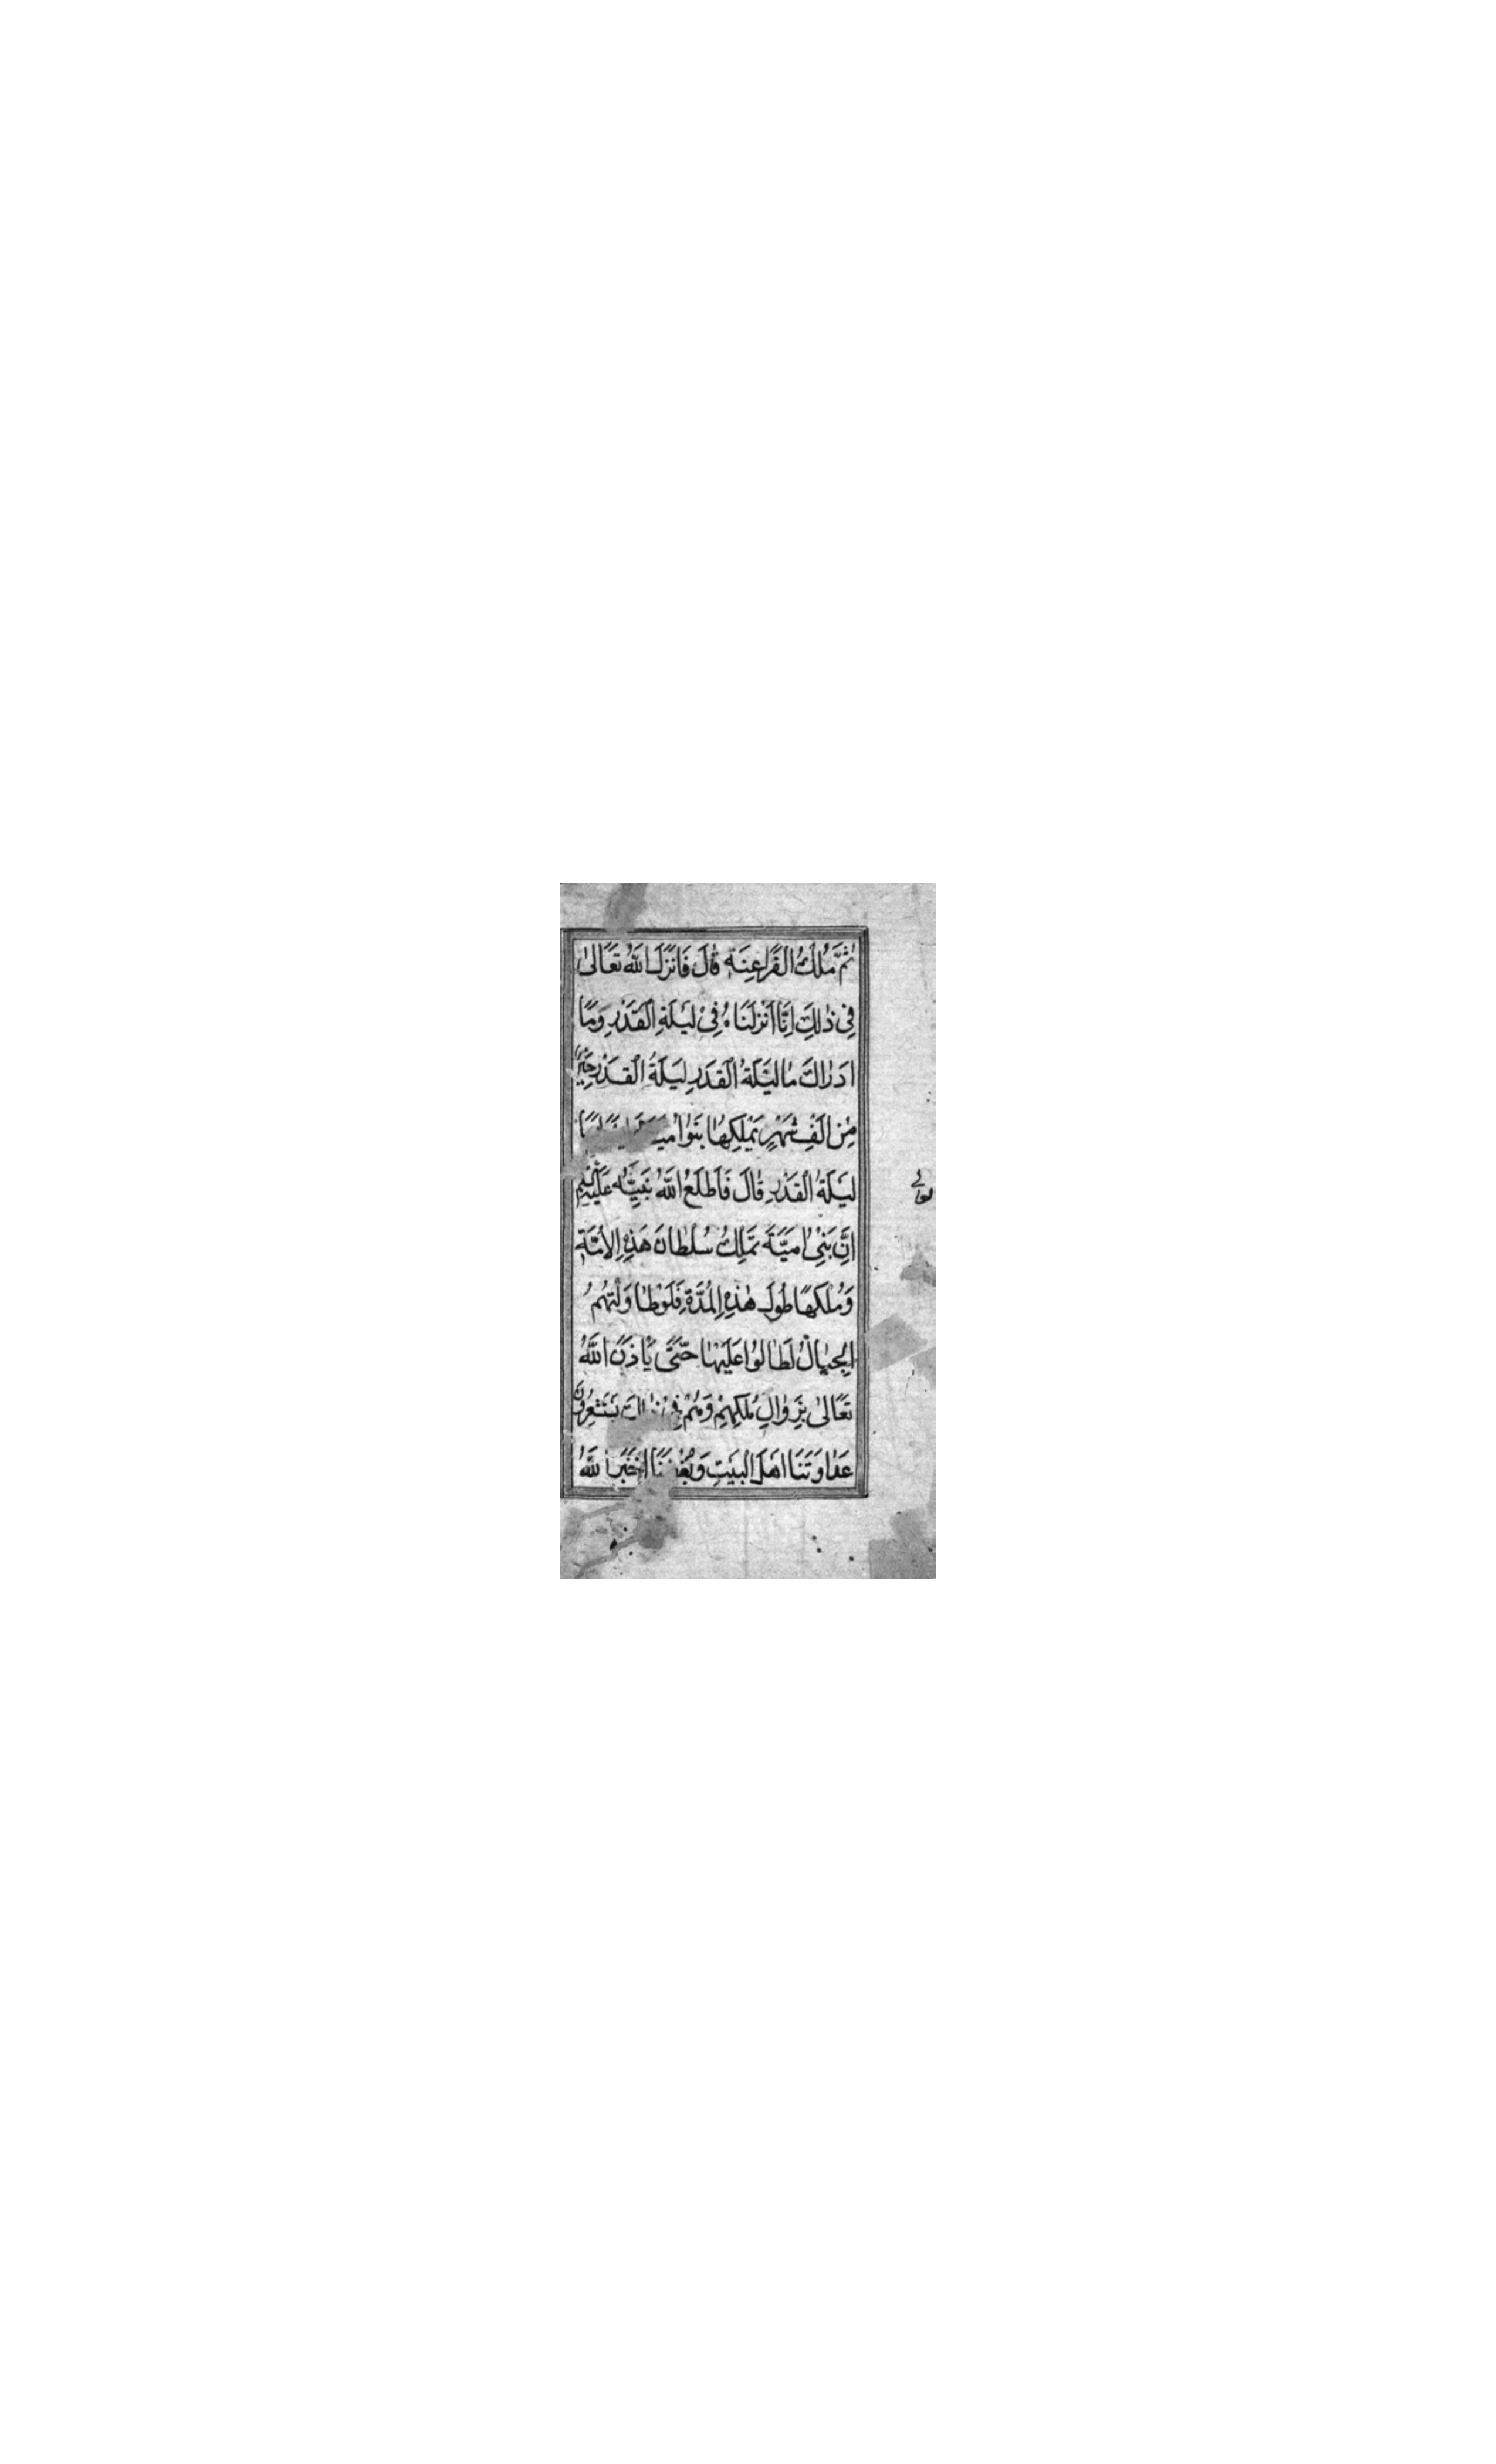 ثُمَّ مُلْكُ الْفَرَاعِنَةِ قَالَ فَاَنْزَلَ اللّٰهُ تَعَالىٰ
فِي ذٰلِكَ اِنَّا اَنْزَلْنَاهُ فِيْ لَيْلَةِ الْقَدْرِ وَمَا
اَدْرٰاكَ مٰا لَيْلَةُ الْقَدْرِ لَيْلَةُ الْقَدْرِ خَيْرٌ
مِنْ اَلْفِ شَهْرٍ يَمْلِكُهٰا بَنُوا
لَيْلَةُ الْقَدْرِ قٰالَ فَاَطْلَعَ اللّٰهُ نَبِيَّهُ عَلَيْهِ
اَنَّ بَنِيْ اُمَيَّةَ تَمْلِكُ سُلْطَانَ هَذِهِ الْاُمَّةِ
وَمُلْكَهَا طُولَ هٰذِهِ الْمُدَّةِ فَلَوْ طٰاوَلَتْهُمُ
الْجِبٰالُ لَطٰالُوا عَلَيْهٰا حَتّٰى يَأْذَنَ اللّٰهُ
تَعَالىٰ بِزَوٰالِ مُلْكِهِمْ وَهُمْ فِي يَسْتَشْعِرُونَ
عَدٰاوَتَنَا اَهْلَ الْبَيْتِ وَبُغْضَنَا اَخْبَرَ اللّٰهُ